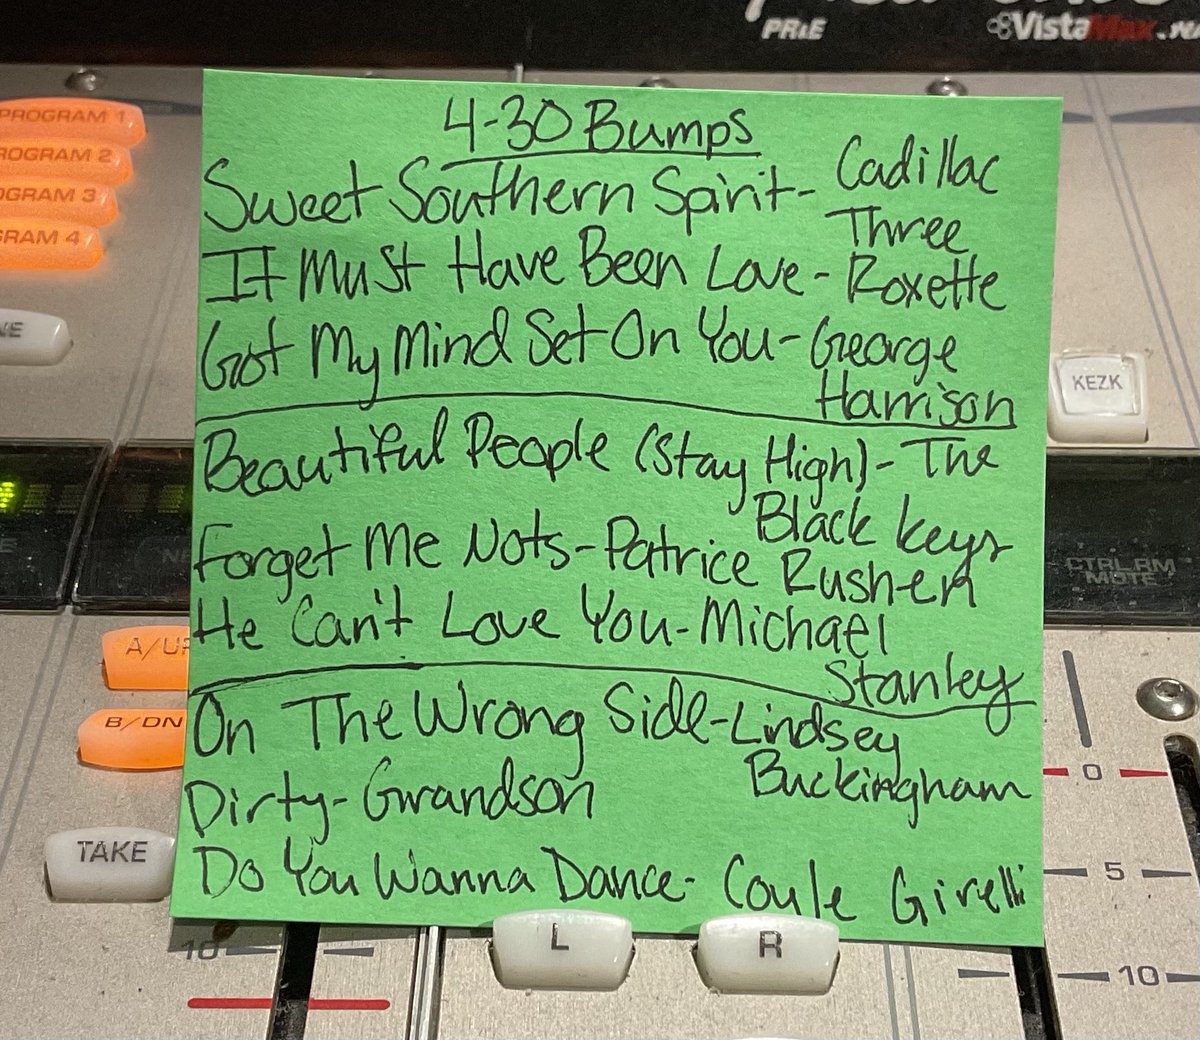 PR&E
VistaMax
PROGRAM 1
OGRAM 2
OGRAM 3
RAM 4
NE
4-30 Bumps
Sweet Southern Spirit- Cadillac
Three
It Must Have Been Love - Roxette
Got My Mind Set On You - George
Harrison
Beautiful People (Stay High) - The
Black Keys
Forget Me Nots - Patrice Rushen
He Can't Love You - Michael
Stanley
On The Wrong Side - Lindsey
Buckingham
Dirty - Grandson
Do You Wanna Dance - Coyle Girelli
KEZK
CTRL RM
MUTE
A/UP
B/DN
TAKE
0
5
10
10
L
R